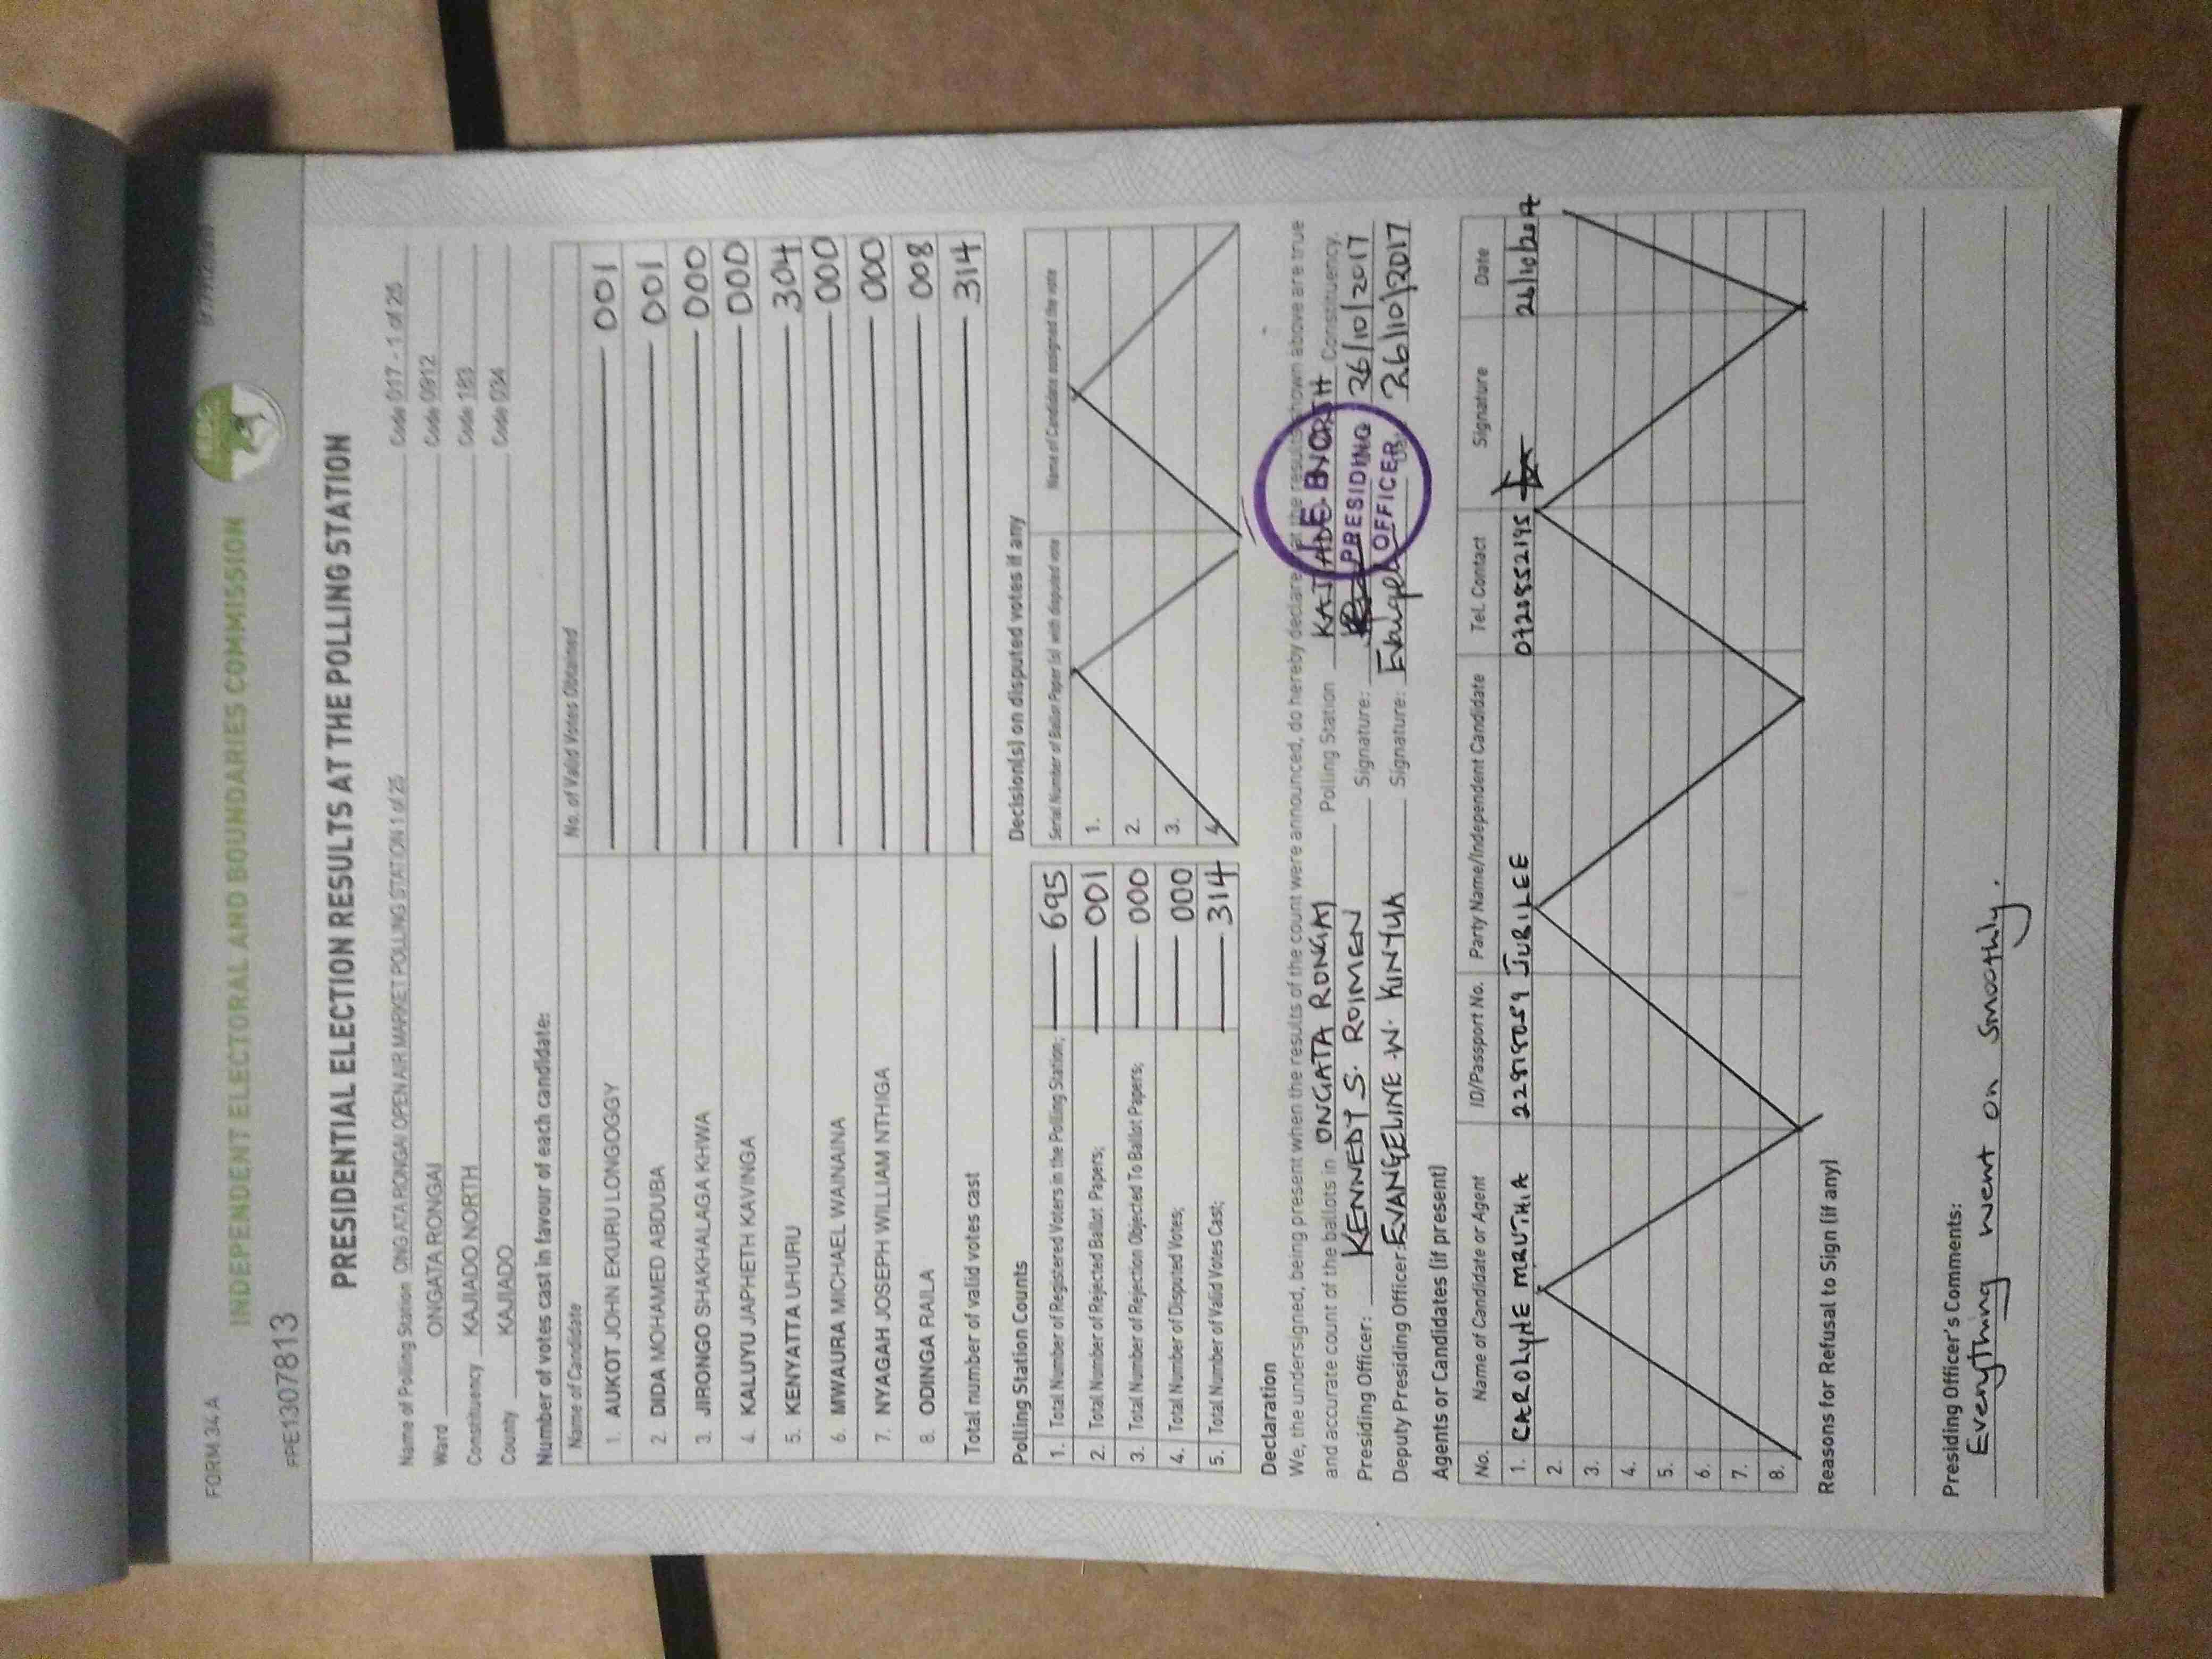 FORM 34 A
INDEPENDENT ELECTORAL AND BOUNDARIES COMMISSION
IEBC
PPE1307813
PRESIDENTIAL ELECTION RESULTS AT THE POLLING STATION
Name of Polling Station ONGATA RONGAI OPEN AIR MARKET POLLING STATION 1 of 25 Code 017 - 1 of 25
Ward ONGATA RONGAI Code 0912
Constituency KAJIADO NORTH Code 183
County KAJIADO Code 034
Number of votes cast in favour of each candidate:
Name of Candidate No. of Valid Votes Obtained
1. AUKOT JOHN EKURU LONGOGGY 001
2. DIDA MOHAMED ABDUBA 001
3. JIRONGO SHAKHALAGA KHWA 000
4. KALUYU JAPHETH KAVINGA 000
5. KENYATTA UHURU 304
6. MWAURA MICHAEL WAINAINA 000
7. NYAGAH JOSEPH WILLIAM NTHIGA 000
8. ODINGA RAILA 008
Total number of valid votes cast 314
Polling Station Counts
1. Total Number of Registered Voters in the Polling Station; 695
2. Total Number of Rejected Ballot Papers; 001
3. Total Number of Rejection Objected To Ballot Papers; 000
4. Total Number of Disputed Votes; 000
5. Total Number of Valid Votes Cast; 314
Decision(s) on disputed votes if any
Serial Number of Ballot Paper (s) with disputed vote Name of Candidate assigned the vote
1.
2.
3.
4.
Declaration
We, the undersigned, being present when the results of the count were announced, do hereby declare that the results shown above are true
and accurate count of the ballots in ONGATA RONGAI Polling Station KAJIADO NORTH Constituency.
Presiding Officer: KENNEDY S. ROIMEN Signature: 26/10/2017
Deputy Presiding Officer: EVANGELINE W. KINYUA Signature: 26/10/2017
PRESIDING
OFFICER
Agents or Candidates (if present)
No. Name of Candidate or Agent ID/Passport No. Party Name/Independent Candidate Tel. Contact Signature Date
1. CAROLYNE MRUTHIA 22818059 JUBILEE 0720552195 26/10/2017
2.
3.
4.
5.
6.
7.
8.
Reasons for Refusal to Sign (if any)
Presiding Officer's Comments:
Everything went on smoothly.